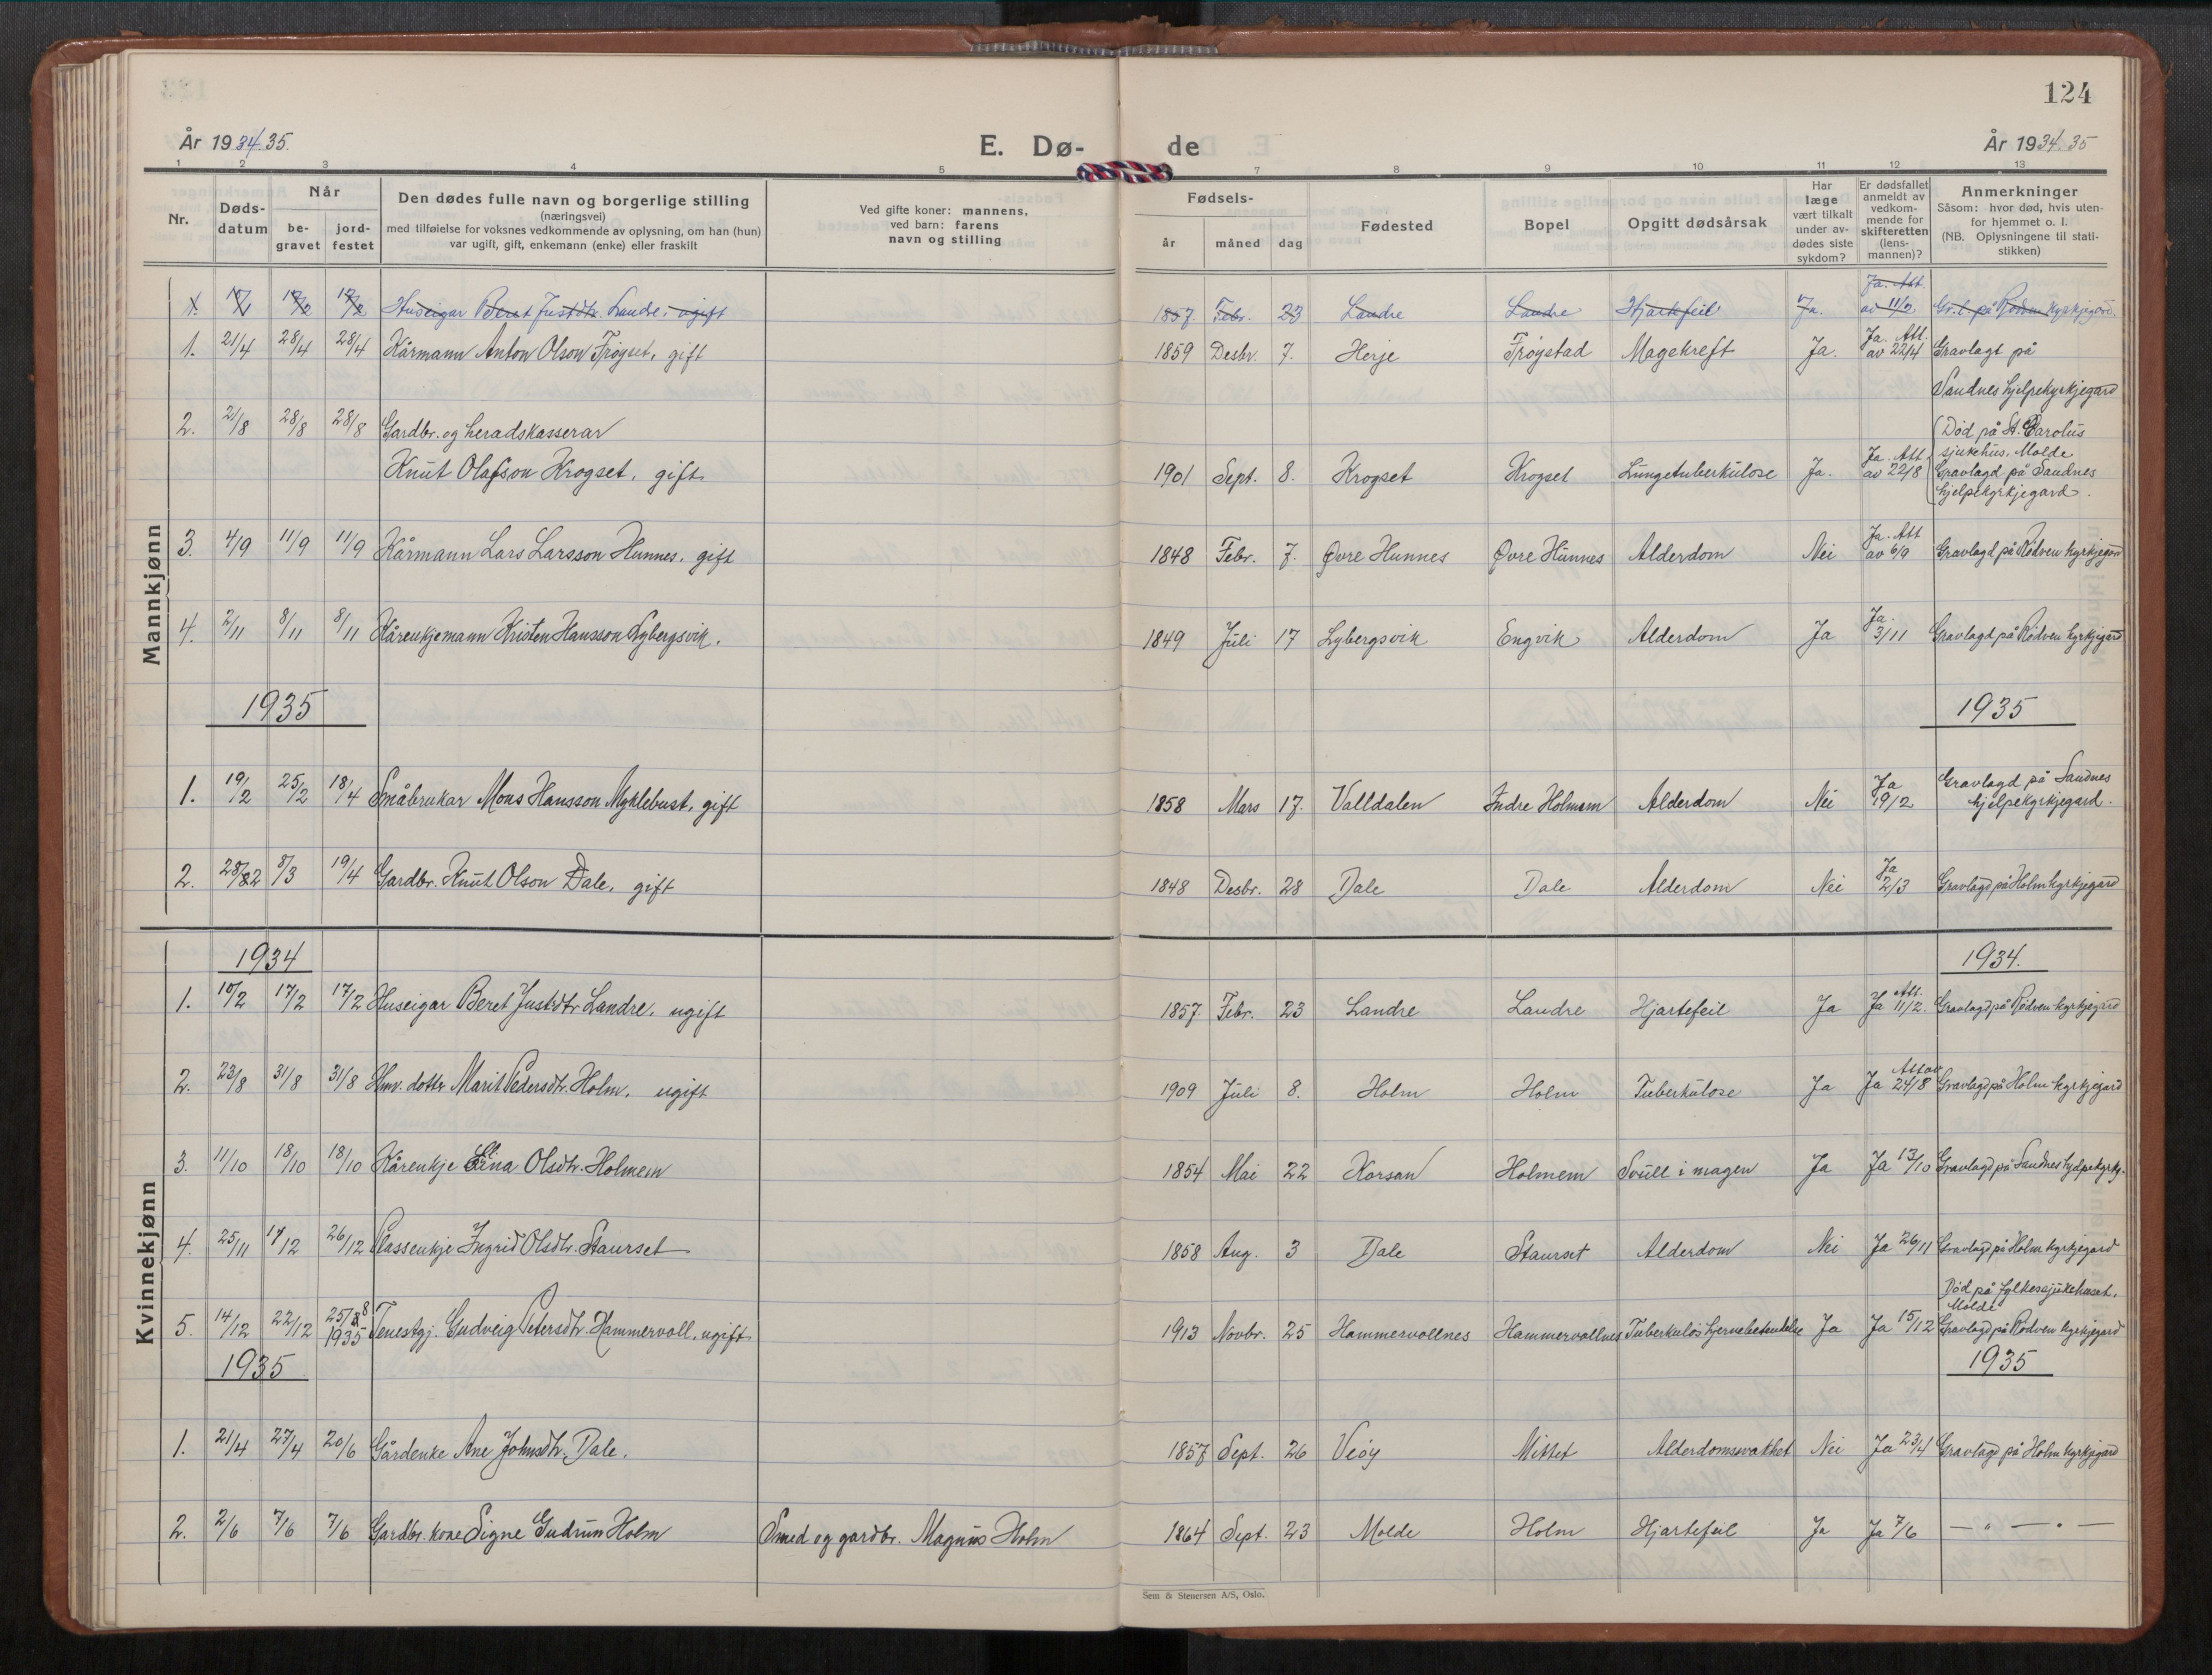 124
År 1934.35.
E. Dø-
de
År 1934.35
1 2 3 4 5 7 8 9 10 11 12 13
Nr.
Døds-
datum
Når
be-
gravet
jord-
festet
Den dødes fulle navn og borgerlige stilling
(næringsvei)
med tilføielse for voksnes vedkommende av oplysning, om han (hun)
var ugift, gift, enkemann (enke) eller fraskilt
Ved gifte koner: mannens,
ved barn: farens
navn og stilling
Fødsels-
år måned dag
Fødested
Bopel
Opgitt dødsårsak
Har
læge
vært tilkalt
under av-
dødes siste
sykdom?
Er dødsfallet
anmeldt av
vedkom-
mende for
skifteretten
(lens-
mannen)?
Anmerkninger
Såsom: hvor død, hvis uten-
for hjemmet o. l.
(NB. Oplysningene til stati-
stikken)
Mannkjønn
1. 17/2 17/2 Huseigar Beret Justdtr. Landre, ugift 1857. Febr. 23 Landre Landre Hjartefeil Ja. Ja. Att. av 11/2 Gr.l. på Rødven kyrkjegard.
1. 21/4 28/4 28/4 Kårmann Anton Olson Frøyset, gift 1859 Desbr. 7. Herje Frøystad Magekreft Ja. Ja. Att. av 22/4 Gravlagt på
Sandnes hjelpekyrkjegard
2. 21/8 28/8 28/8 Gardbr. og heradskasserar
Knut Olafson Krogset, gift 1901 Sept. 8. Krogset Krogset Lungetuberkulose Ja. Ja. Att av 22/8
Død på St. Carolus
sjukehus, Molde
Gravlagd på Sandnes
hjelpekyrkjegard.
3. 4/9 11/9 11/9 Kårmann Lars Larsson Hunnes, gift 1848 Febr. 7. Øvre Hunnes Øvre Hunnes Alderdom Nei Ja. Att av 6/9 Gravlagd på Rødven kyrkjegard
4. 2/11 8/11 8/11 Kårenkjemann Kristen Hansson Lybergsvik. 1849 Juli 17 Lybergsvik Engvik Alderdom Ja Ja. 3/11 Gravlagd på Rødven kyrkjegard
1935 1935
1. 19/2 25/2 18/4 Småbrukar Mons Hansson Myklebust, gift 1858 Mars 17. Valldalen Indre Holmem Alderdom Nei Ja 19/2 Gravlagd på Sandnes
hjelpekyrkjegard.
2. 28/2 8/3 19/4 Gardbr. Knut Olson Dale, gift 1848 Desbr. 28 Dale Dale Alderdom Nei Ja 2/3 Gravlagd på Holm kyrkjegard
Kvinnekjønn
1934 1934.
1. 10/2 17/2 17/2 Huseigar Beret Justdtr Landre, ugift 1857. Febr. 23 Landre Landre Hjartefeil Ja Ja Att. 11/2. Gravlagd på Rødven kyrkjegard
2. 23/8 31/8 31/8 Hmv. dottr Marit Pedersdtr. Holm, ugift 1909 Juli 8. Holm Holm Tuberkulose Ja Ja Att av 24/8 Gravlagd på Holm kyrkjegard
3. 11/10 18/10 18/10 Kårenkje Olsdtr. Holmem 1854 Mai 22 Korsan Holmem Svull i magen Ja Ja 13/10 Gravlagd på Sandnes hjelpekyrkj.
4. 25/11 1/12 26/12 Plassenkje Ingrid Olsdtr. Staurset 1858 Aug. 3 Dale Staurset Alderdom Nei Ja 26/11 Gravlagd på Holm kyrkjegard
5. 14/12 22/12 25/8 1935 Tenestgj. Gudveig Petersdtr. Hammervoll, ugift 1913 Novbr. 25 Hammervollnes Hammervollnes Tuberkuløs hjernebetendelse Ja Ja 15/12 Død på fylkessjukehuset,
Molde
Gravlagd på Rødven kyrkjegard
1935 1935
1. 21/4 27/4 20/6 Gårdenke Ane Johnsdtr. Dale. 1857 Sept. 26 Veøy Mittet Alderdomsvakhet Nei Ja 23/4 Gravlagd på Holm kyrkjegard
2. 2/6 7/6 7/6 Gardbr. kone Signe Gudrun Holm Smed og gardbr. Magnus Holm 1864 Sept. 23 Molde Holm Hjartefeil Ja Ja 7/6 — " — " —
Sem & Stenersen A/S, Oslo.